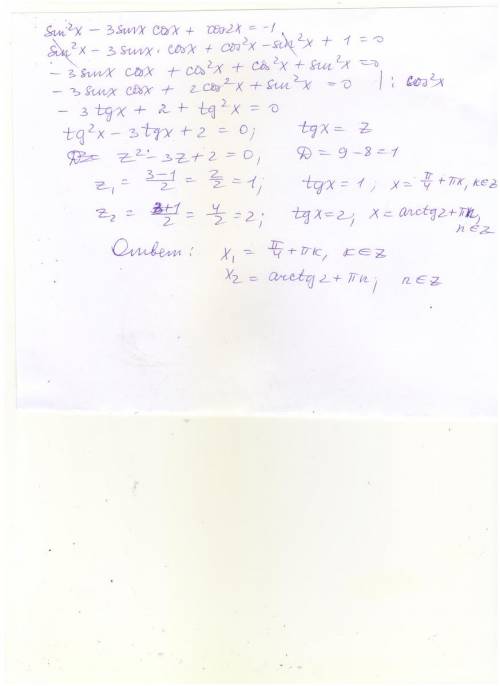 sin²x − 3 sinx cosx + cos2x = −1
sin²x − 3 sinx · cosx + cos²x − sin²x + 1 = 0
− 3 sinx cosx + cos²x + cos²x + sin²x = 0
− 3 sinx cosx + 2cos²x + sin²x = 0 | : cos²x
− 3 tgx + 2 + tg²x = 0
tg²x − 3tgx + 2 = 0; tgx = z
z² − 3z + 2 = 0, D = 9 − 8 = 1
z₁ = (3−1)/2 = 2/2 = 1; tgx = 1; x = π/4 + πk, k∈z
z₂ = (3+1)/2 = 4/2 = 2; tgx = 2, x = arctg2 + πn,
n∈z
Ответ: x₁ = π/4 + πk, k∈z
x₂ = arctg2 + πn, n∈z